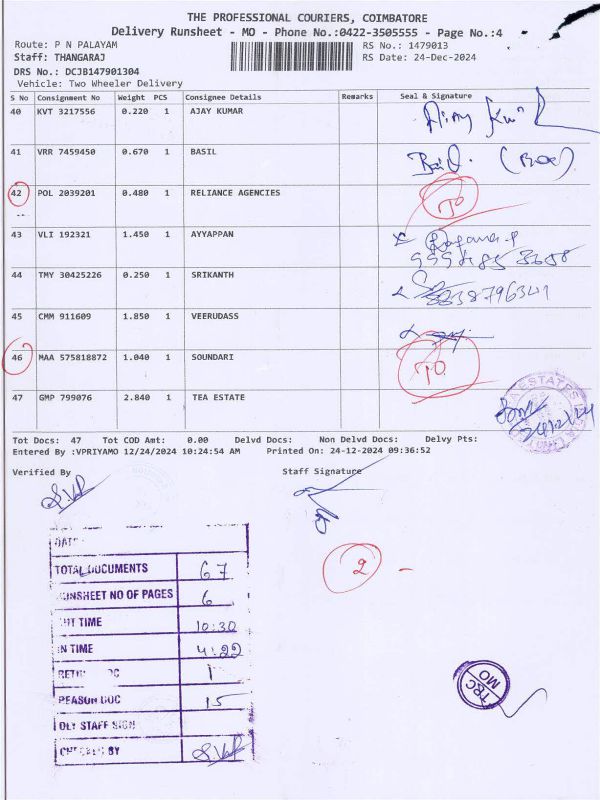 THE PROFESSIONAL COURIERS, COIMBATORE
Delivery Runsheet - MO - Phone No.:0422-3505555 - Page No.:4
Route: P N PALAYAM
RS No.: 1479013
Staff: THANGARAJ
RS Date: 24-Dec-2024
DRS No.: DCJB147901304
Vehicle: Two Wheeler Delivery
S No Consignment No Weight PCS Consignee Details Remarks Seal & Signature
40 KVT 3217556 0.220 1 AJAY KUMAR
41 VRR 7459450 0.670 1 BASIL
42 POL 2039201 0.480 1 RELIANCE AGENCIES TO
43 VLI 192321 1.450 1 AYYAPPAN
44 TMY 30425226 0.250 1 SRIKANTH
45 CMM 911609 1.850 1 VEERUDASS
46 MAA 575818872 1.040 1 SOUNDARI TO
47 GMP 799076 2.840 1 TEA ESTATE
Tot Docs: 47 Tot COD Amt: 0.00 Delvd Docs: Non Delvd Docs: Delvy Pts:
Entered By :VPRIYAMO 12/24/2024 10:24:54 AM Printed On: 24-12-2024 09:36:52
Verified By Staff Signature
DATE
TOTAL DOCUMENTS 67
RUNSHEET NO OF PAGES 6
OUT TIME 10:30
IN TIME 4:22
RETN DOC 1
REASON DOC 15
DLY STAFF SIGN
CHECKED BY
2
T&C
MO